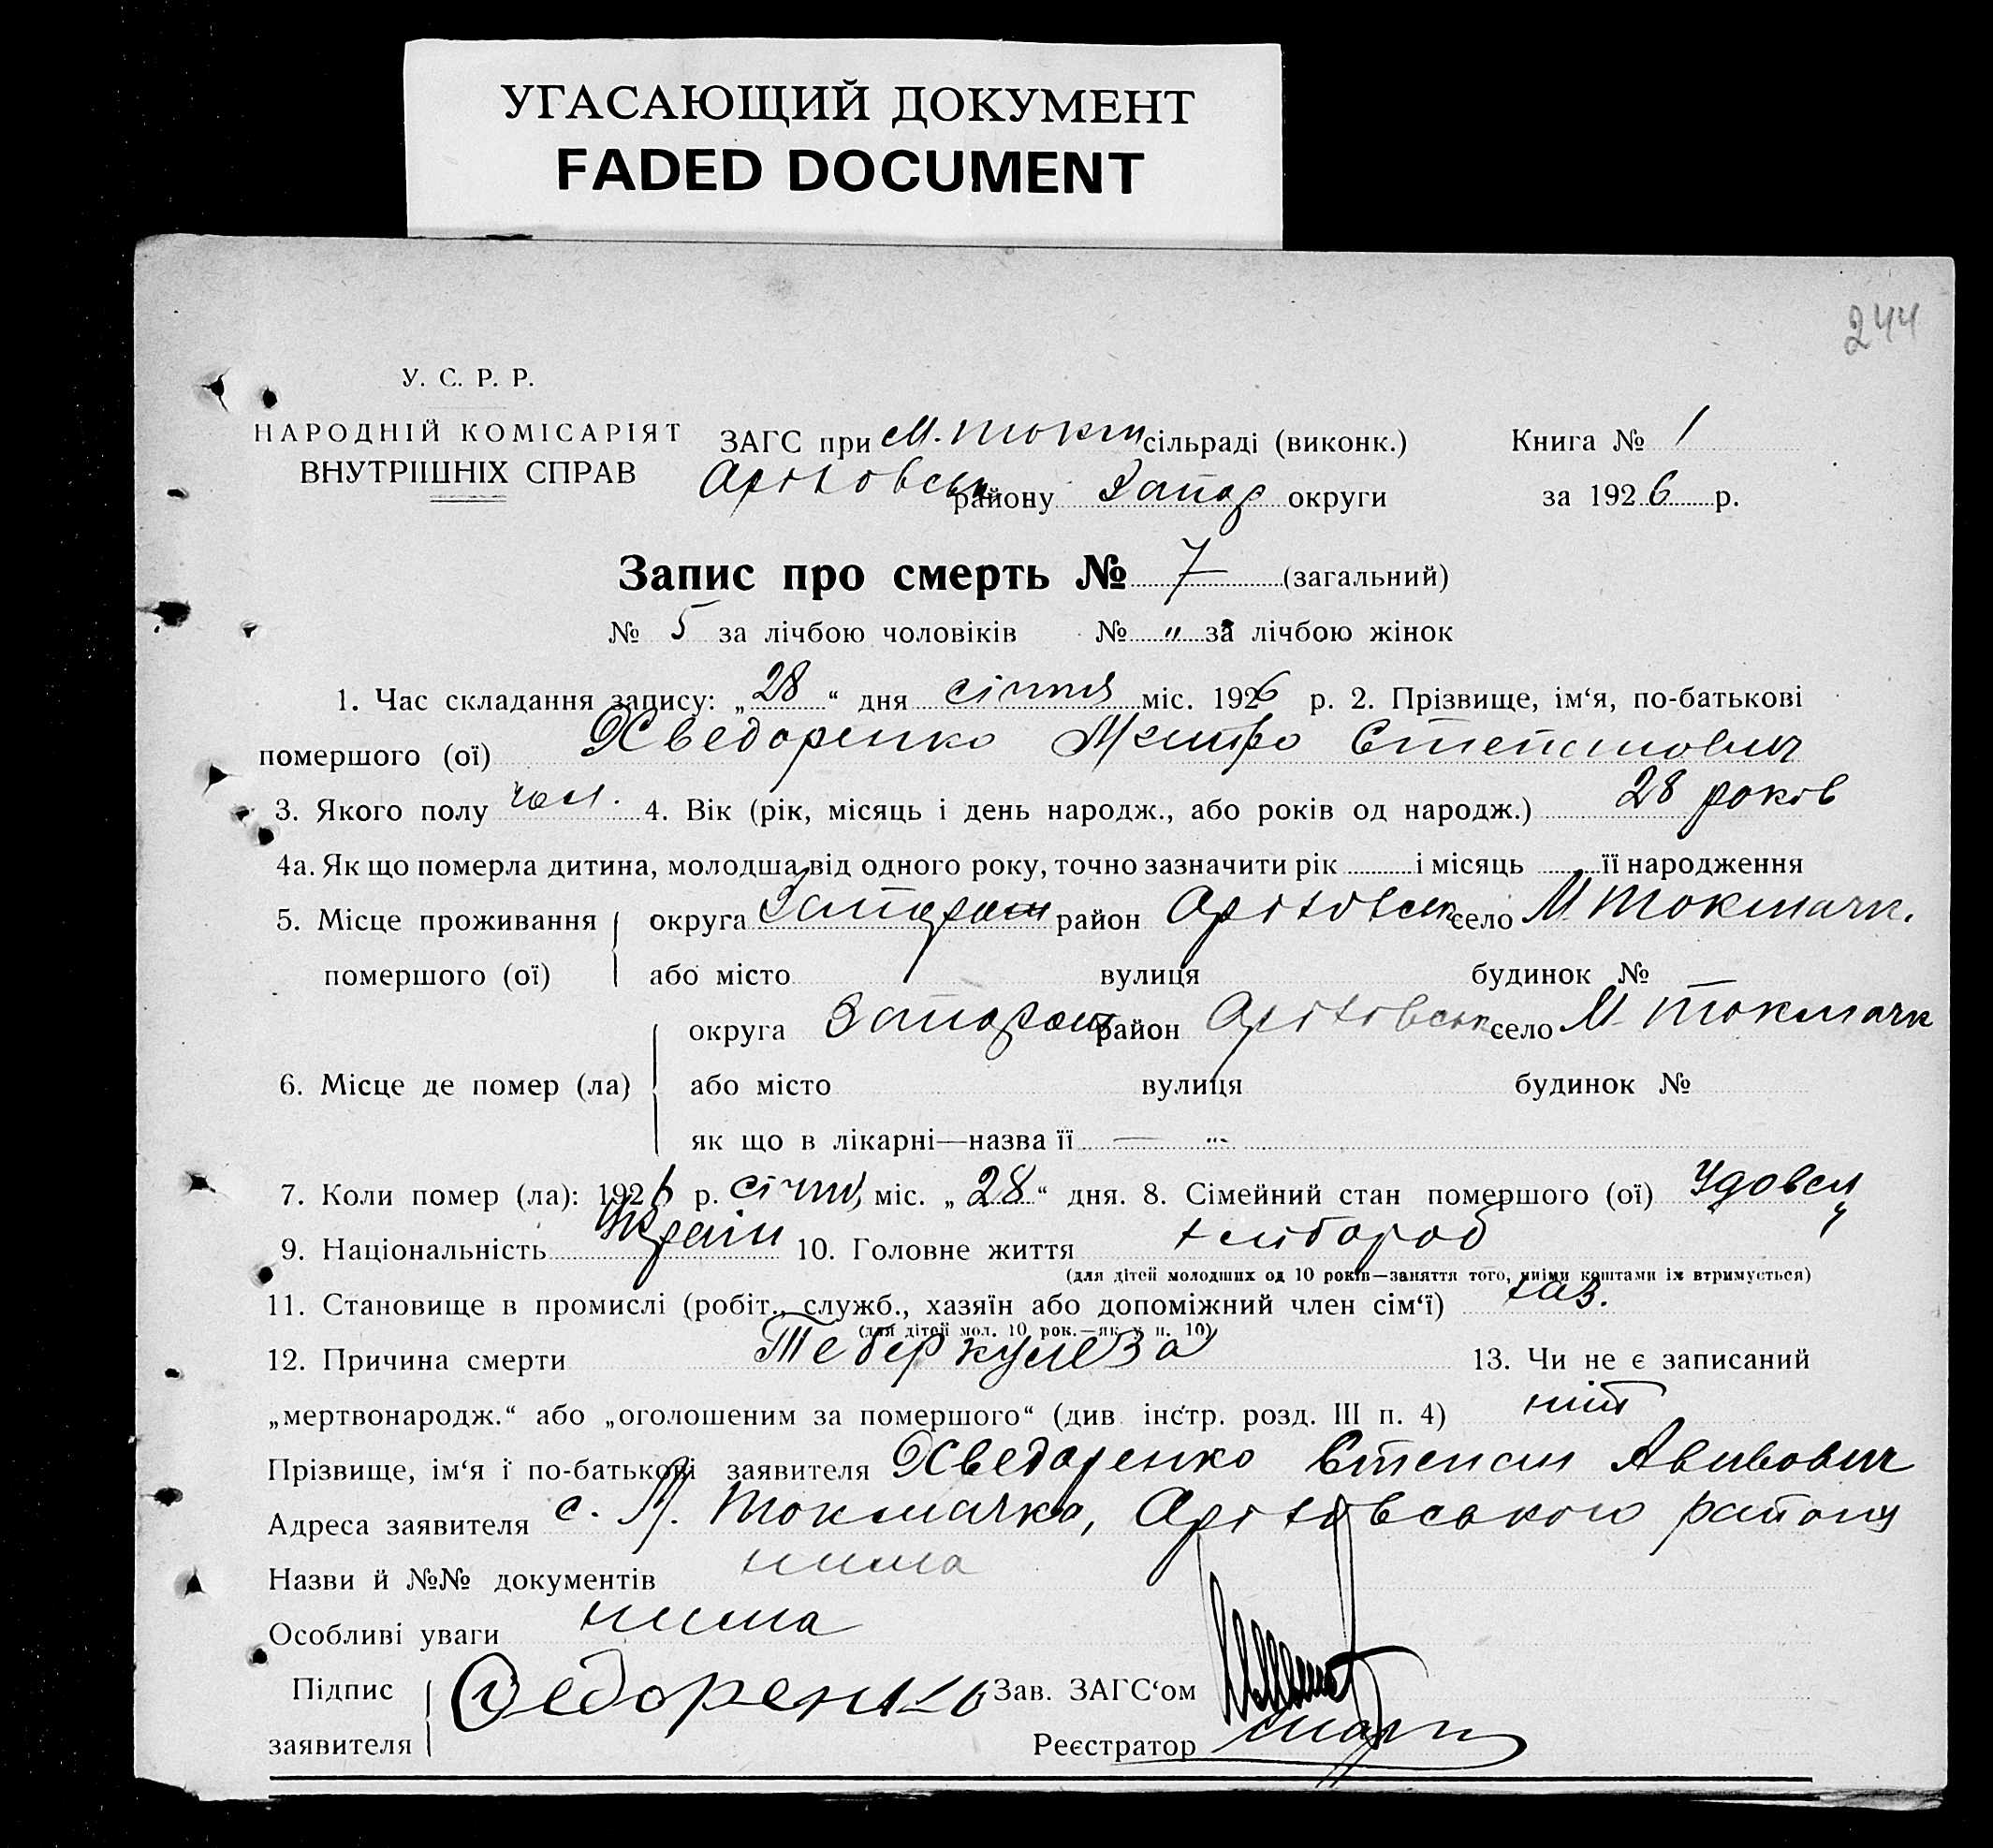 УГАСАЮЩИЙ ДОКУМЕНТ
FADED DOCUMENT
244
У. С. Р. Р.
НАРОДНІЙ КОМІСАРІЯТ
ВНУТРІШНІХ СПРАВ
ЗАГС при М. Токм сільраді (виконк.) Книга № 1
Оріховськ району Запор округи за 1926 р.
Запис про смерть № 7 (загальний)
№ 5 за лічбою чоловіків № „ за лічбою жінок
1. Час складання запису: „28“ дня січня міс. 1926 р. 2. Прізвище, ім‘я, по-батькові
помершого (ої) Хведоренко Митро Степанович
3. Якого полу чол. 4. Вік (рік, місяць і день народж., або років од народж.) 28 років
4а. Як що померла дитина, молодша від одного року, точно зазначити рік і місяць її народження
5. Місце проживання округа Запорож район Оріховськ село М Токмачк.
помершого (ої) або місто вулиця будинок №
округа Запорож район Оріховськ село М. Токмачк
6. Місце де помер (ла) або місто вулиця будинок №
як що в лікарні—назва її — „
7. Коли помер (ла): 1926 р. січня міс. „28“ дня. 8. Сімейний стан помершого (ої) Удовец
9. Національність Україн 10. Головне життя хлібороб
(для дітей молодших од 10 років—заняття того, чиїми коштами їх втримується)
11. Становище в промислі (робіт., служб., хазяїн або допоміжний член сім‘ї) хаз.
(для дітей мол. 10 рок.—як у п. 10)
12. Причина смерти Теберкулеза 13. Чи не є записаний
„мертвонародж.“ або „оголошеним за помершого“ (див. інстр. розд. III п. 4) ніт
Прізвище, ім‘я ї по-батькові заявителя Хведоренко Степан
Адреса заявителя с. М. Токмачка, Оріховського району
Назви й №№ документів нима
Особливі уваги нима
Підпис Федоренко Зав. ЗАГС‘ом
заявителя Реєстратор